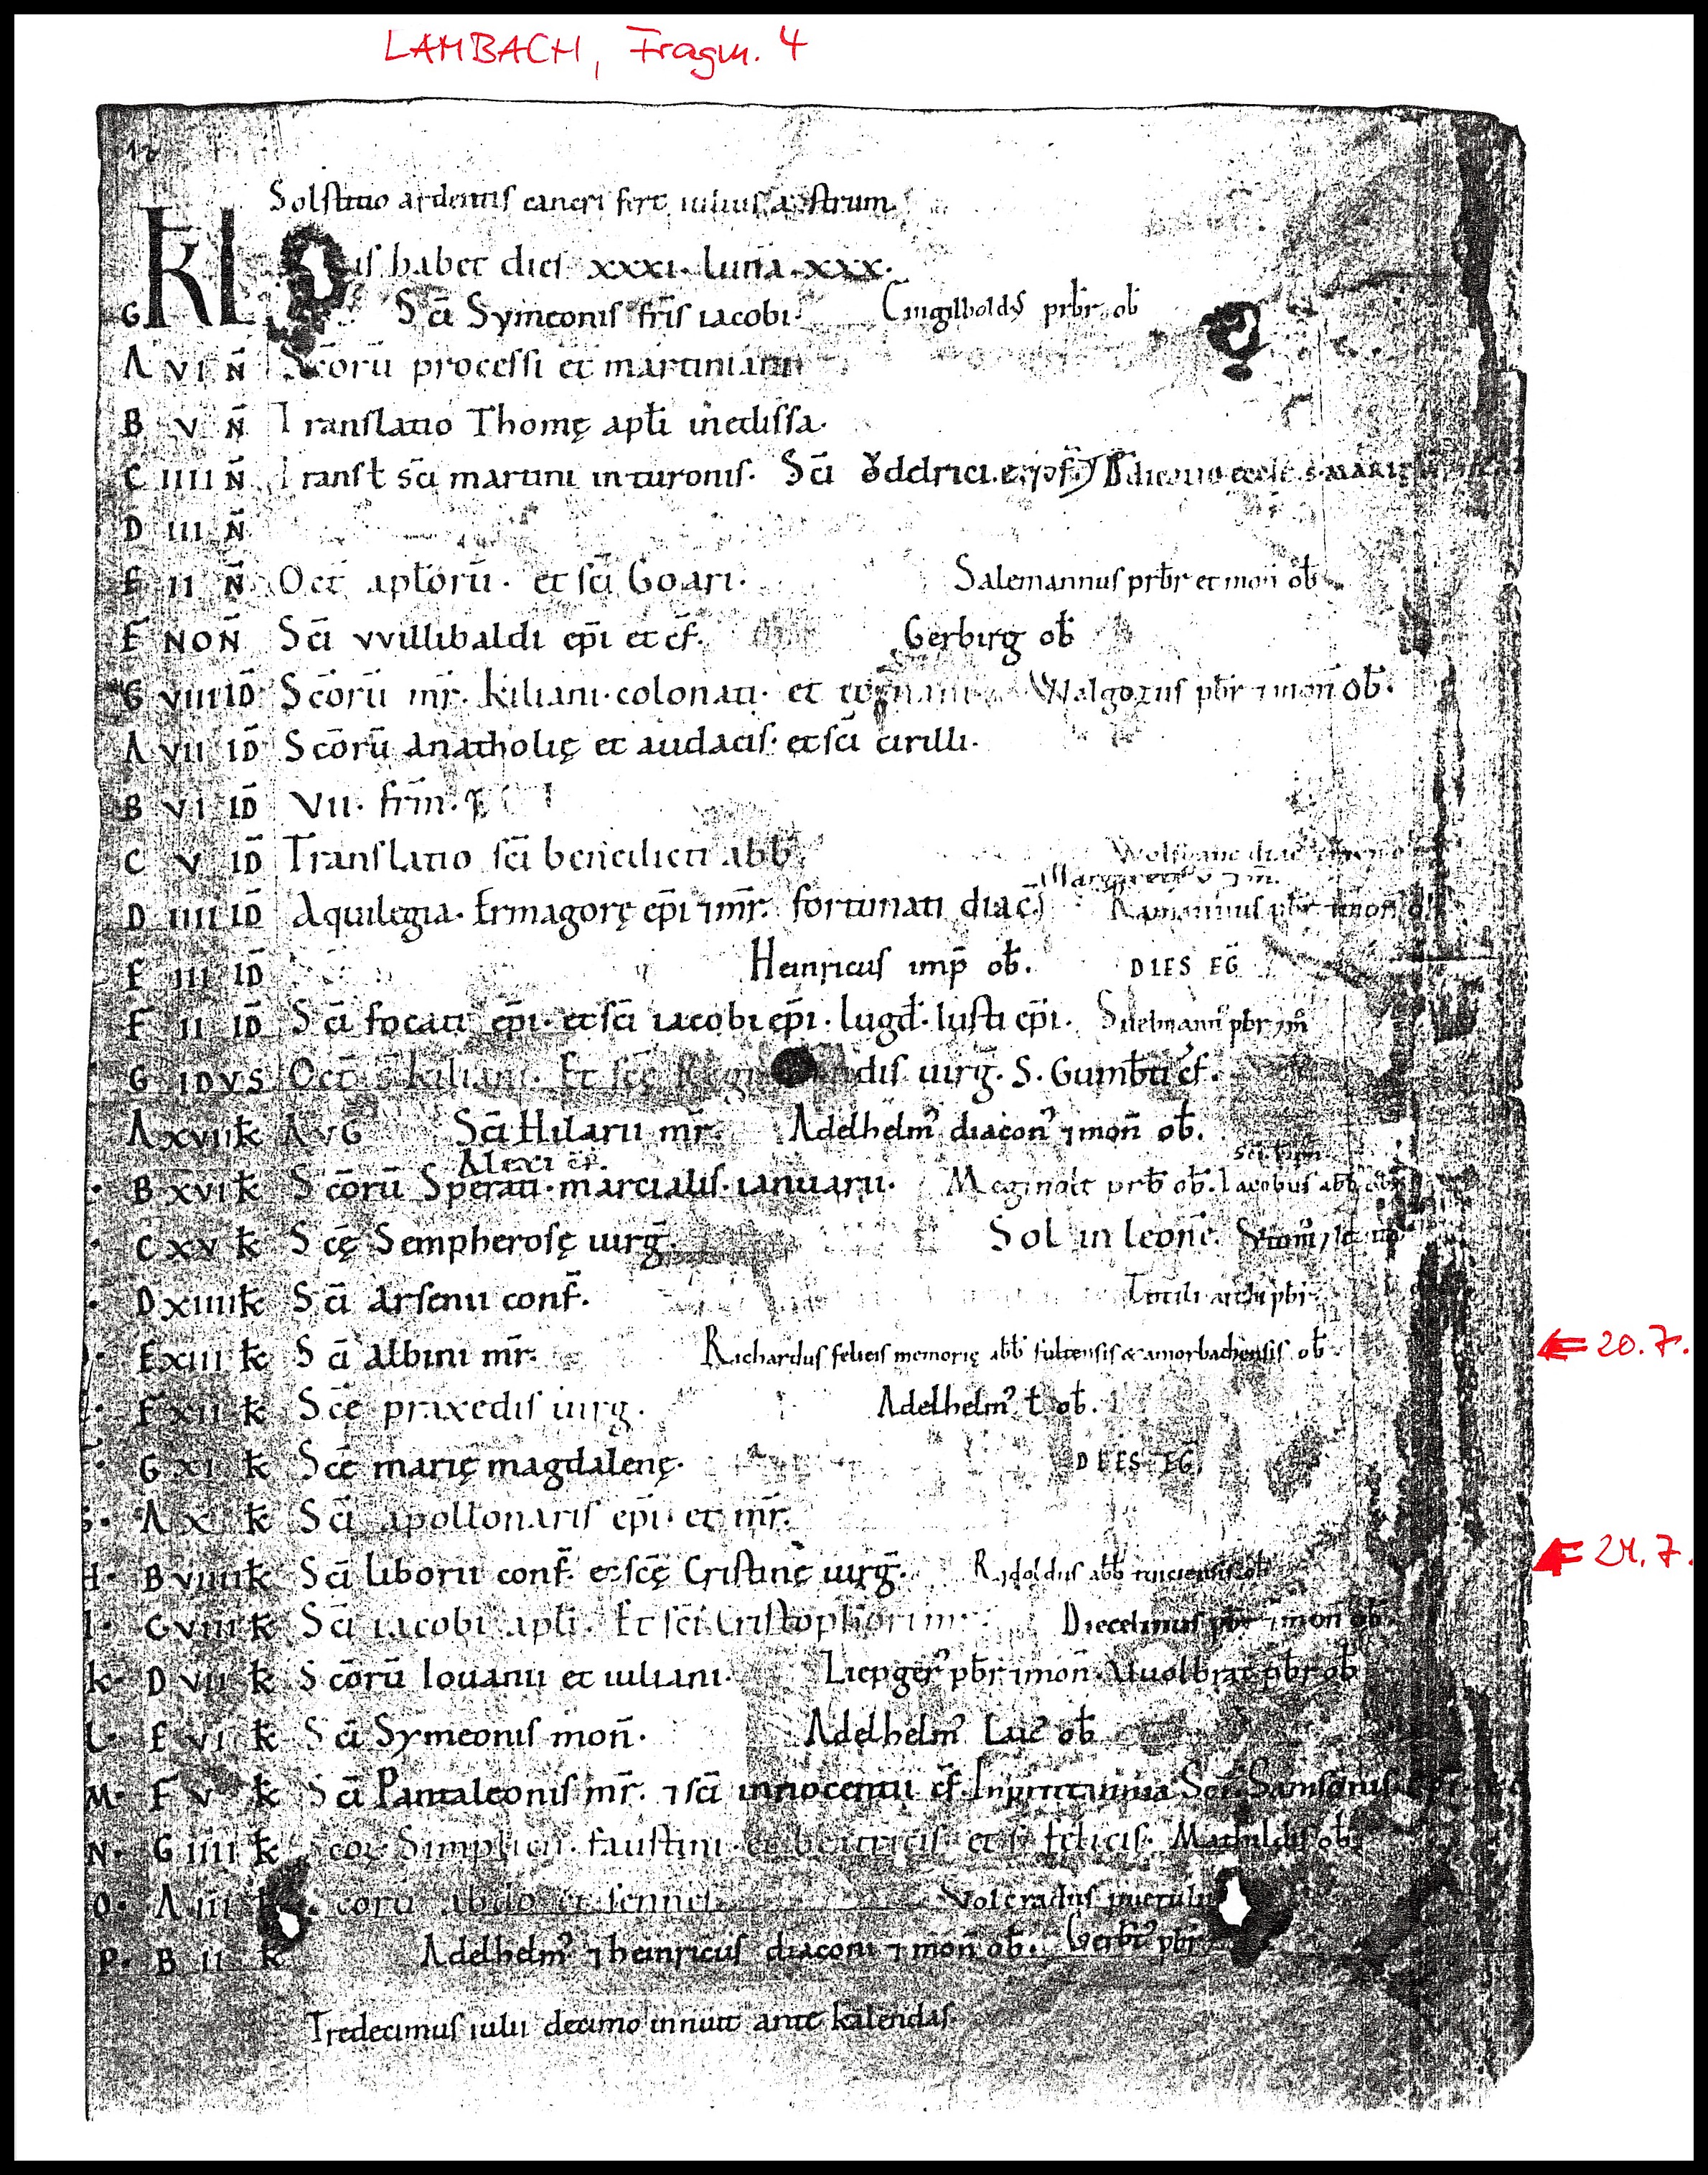 LAMBACH, Fragm. 4
Solstitio ardentis cancri fert iulius astrum
KL is habet dies xxxi. luna. xxx.
G Sci Symeonis fris iacobi. prbr ob
A VI N̄ Scorū processi et martiniani
B V N̄ Translatio Thomę apli in edissa.
C IIII N̄ Transl sci martini in turonis. Sci Ŏdelrici.
D III N̄
E II N̄ Oct aplorū. et sci Goari. Salemannus prbr et mon ob
F NON̄ Sci vvillibaldi epi et cf. Gerbirg ob
G VIII ID Scorū mr. kiliani. colonati. et Walgozus pbr ⁊ mon ob.
A VII ID Scorū anatholię et audacis. et sci cirilli.
B VI ID VII. frm.
C V ID Translatio sci benedicti abb.
D IIII ID Aquilegia. Ermagorę epi ⁊ mr. fortunati diac pbr ⁊ mon ob
E III ID Heinricus imp ob. DIES EG
F II ID Sci focati epi. et sci iacobi epi. lugd. Iusti epi. pbr ⁊ m
G IDVS Oct s kiliani. Et scę dis uirg. S. Gumbti cf.
A XVII k AVG Sci Hilarii mr. Adelhelm' diacon' ⁊ mon ob.
Alexi cf.
B XVI k Scorū Sperati. marcialis. ianuarii. Meginolt prb ob. Iacobus abb
C XV k Scę Sempherosę uirg. Sol in leone.
D XIIII k Sci arsenii conf. pbr
E XIII k Sci albini mr. Richardus felicis memorię abb fultensis & amorbachensis ob ⇐ 20.7.
F XII k Sce praxedis uirg. Adelhelm' l ob.
G XI k Sce marię magdalenę. DIES EG
A X k Sci apollonaris epi. et mr.
H. B VIIII k Sci liborii conf. et scę Cristinę uirg. Rŏdoldus abb ob ⇐ 24.7.
I. C VIII k Sci iacobi apli. Et sci Cristophori m Diecelinus pbr ⁊ mon ob.
K. D VII k Scorū Iouanii et iuliani. Liepger' pbr ⁊ mon. pbr ob
L. E VI k Sci Symeonis mon. Adelhelm' Laic ob
M. F V k Sci Pantaleonis mr. ⁊ sci innocentii cf. In Sci. Samsonis
N. G IIII k Scoꝝ Simplicii. faustini. et beatricis. et s felicis. Mathildis ob
O. A III k Scorū abdo et sennes Volcradus puerulus
P. B II k Adelhelm' ⁊ heinricus diaconi ⁊ mon ob. Gerbt' pbr
Tredecimus iulii decimo innuit ante kalendas.